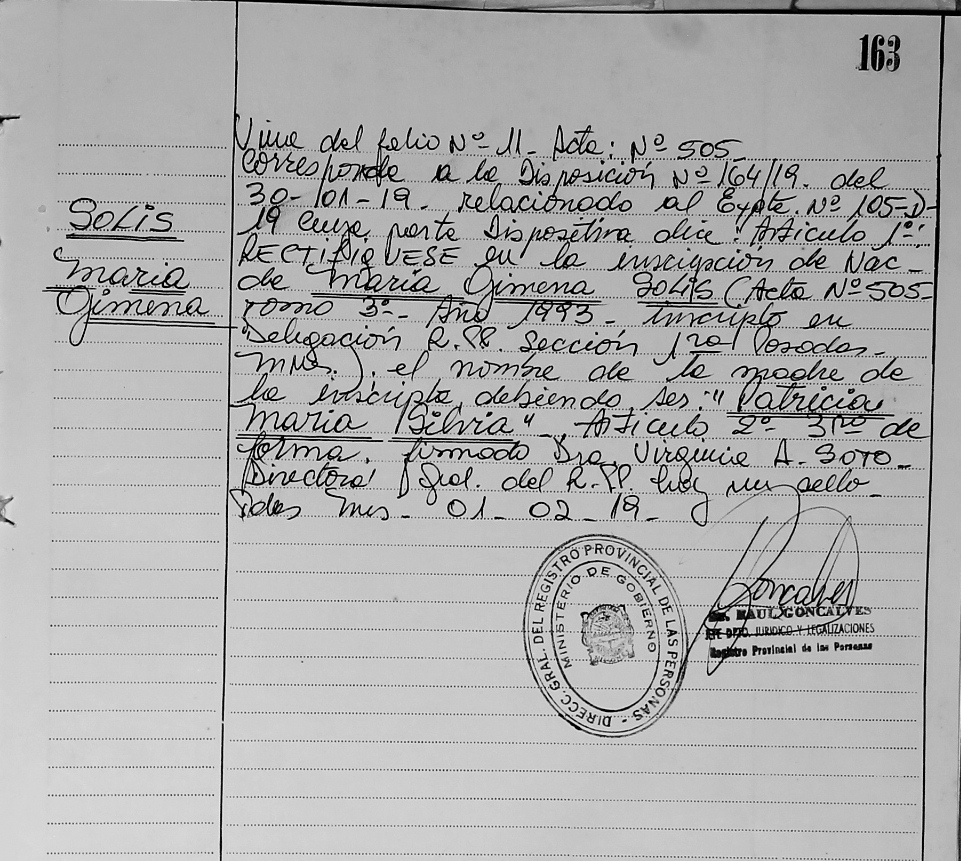 163
SOLIS
Maria
Gimena
Viene del folio Nº 11_ Acta: Nº 505_
Corresponde a la Disposición Nº 164/19. del
30-01-19. relacionado al Expte. Nº 105-D-
19 cuya parte Dispositiva dice: Articulo 1º:
RECTIFIQUESE en la inscripción de Nac_
de Maria Gimena SOLIS (Acta Nº 505-
Tomo 3º_ Año 1993_ Inscripto en
Delegación R.PP. Sección 1ra Posadas_
Mnes.). el nombre de la madre de
la inscripta debiendo ser: "Patricia
Maria Silvia"_ Articulo 2º_ 3ro de
forma. firmado Dra. Virginia A. SOTO_
Directora Gral. del R.PP. hay un sello_
Pdas Mnes_ 01_02_19_
DIRECC. GRAL. DEL REGISTRO PROVINCIAL DE LAS PERSONAS -
MINISTERIO DE GOBIERNO
Goncalves
RAUL GONCALVES
DPTO. JURIDICO Y LEGALIZACIONES
Registro Provincial de las Personas